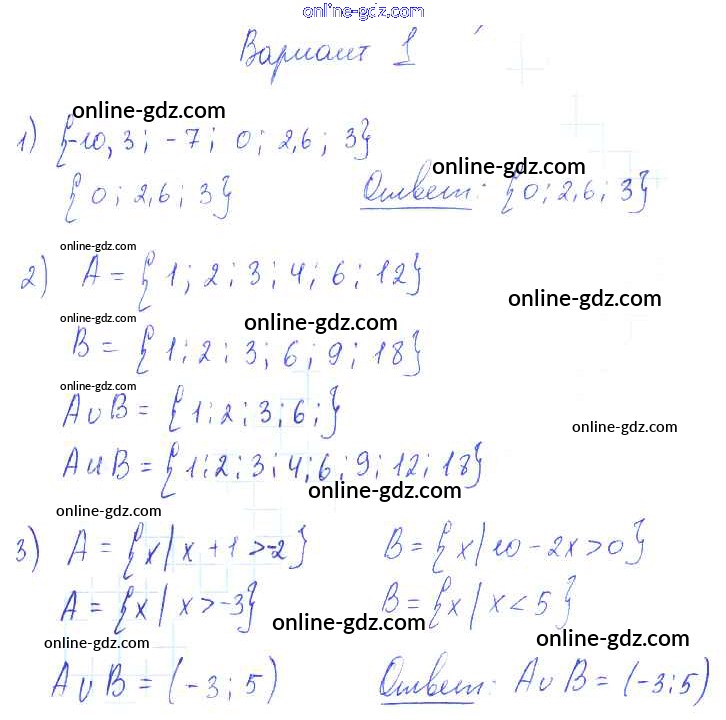 online-gdz.com
Вариант 1
online-gdz.com
1) {-10,3; -7; 0; 2,6; 3}
online-gdz.com
{0; 2,6; 3} Ответ: {0; 2,6; 3}
online-gdz.com
2) A = {1; 2; 3; 4; 6; 12}
online-gdz.com
online-gdz.com
online-gdz.com
B = {1; 2; 3; 6; 9; 18}
online-gdz.com
A∪B = {1; 2; 3; 6;}
online-gdz.com
AиB = {1; 2; 3; 4; 6; 9; 12; 18}
online-gdz.com
online-gdz.com
3) A = {x/x+1>-2} B = {x/10-2x>0}
A = {x/x>-3} B = {x/x<5}
online-gdz.com
online-gdz.com
online-gdz.com
A∪B = (-3; 5) Ответ: A∪B = (-3; 5)